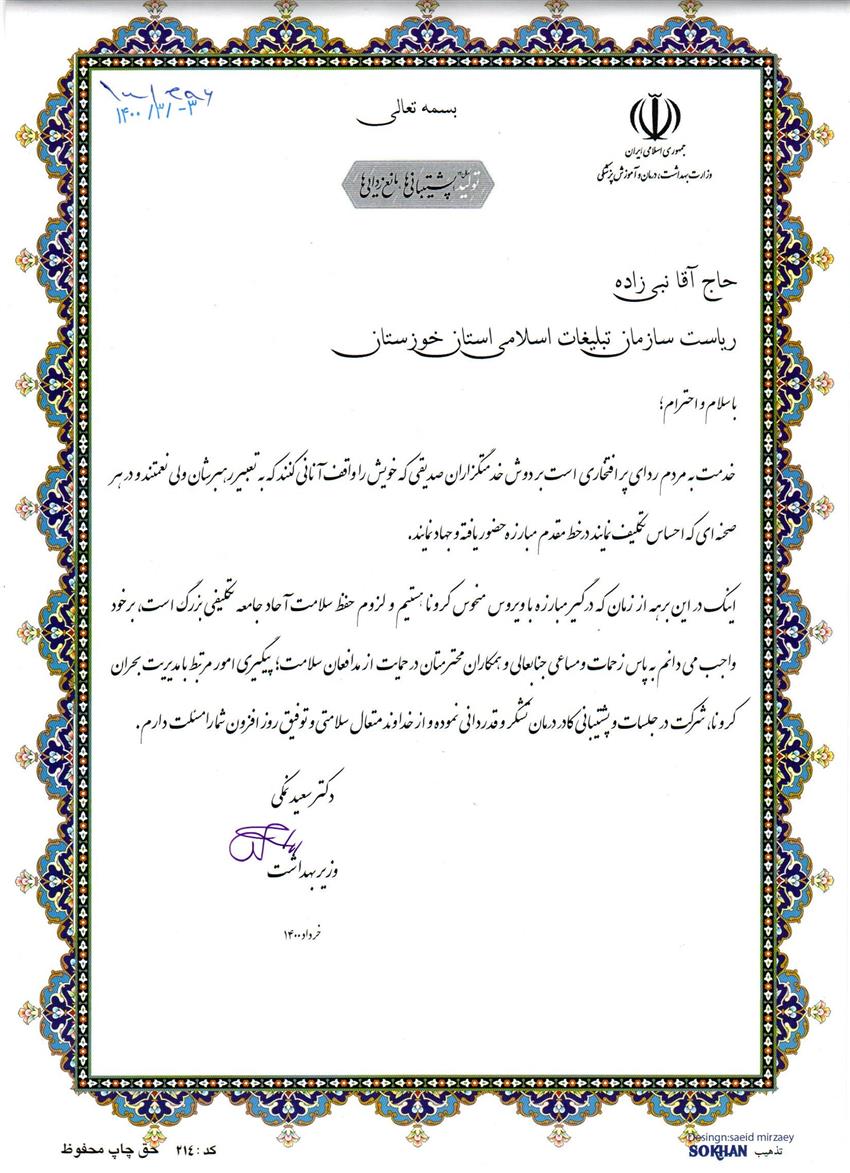 بسمه تعالی
جمهوری اسلامی ایران
وزارت بهداشت، درمان و آموزش پزشکی
۱۴۰۰/۳/۳۰
تولید پشتیبانی‌ها، مانع‌زدایی‌ها
حاج آقا نبی زاده
ریاست سازمان تبلیغات اسلامی استان خوزستان
با سلام و احترام؛
خدمت به مردم ردای پر افتخاری است بر دوش خدمتگزاران صدیقی که خویش را واقف آنانی کنند که به تعبیر رهبرشان ولی نعمتند و در هر
صحنه ای که احساس تکلیف نمایند در خط مقدم مبارزه حضور یافته و جهاد نمایند.
اینک در این برهه از زمان که درگیر مبارزه با ویروس منحوس کرونا هستیم و لزوم حفظ سلامت آحاد جامعه تکلیفی بزرگ است، بر خود
واجب می دانم به پاس زحمات و مساعی جنابعالی و همکاران محترمتان در حمایت از مدافعان سلامت؛ پیگیری امور مرتبط با مدیریت بحران
کرونا، شرکت در جلسات و پشتیبانی کادر درمان تشکر و قدردانی نموده و از خداوند متعال سلامتی و توفیق روز افزون شما را مسئلت دارم.
دکتر سعید نمکی
وزیر بهداشت
خرداد ۱۴۰۰
Desingn:saeid mirzaey
تذهیب SOKHAN
کد : ۲۱٤ حق چاپ محفوظ